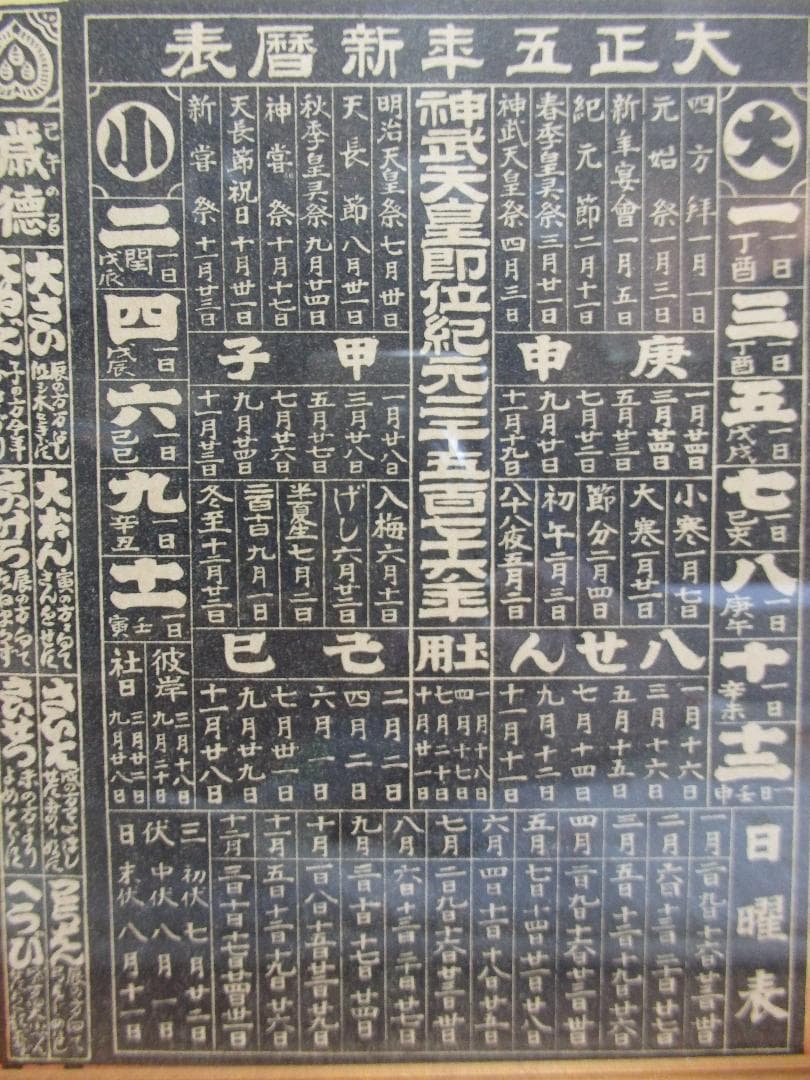 大正五年新暦表
大
一 一日 丁酉
三 一日 丁酉
五 一日 戊戌
七 一日 己亥
八 一日 庚午
十 一日 辛未
十二 一日 壬申
四方拜 一月一日
元始祭 一月三日
新年宴會 一月五日
紀元節 二月十一日
春季皇灵祭 三月廿一日
神武天皇祭 四月三日
神武天皇即位紀元二千五百七十六年
明治天皇祭 七月卅日
天長節 八月卅一日
秋季皇灵祭 九月廿四日
神嘗祭 十月十七日
天長節祝日 十月卅一日
新嘗祭 十一月廿三日
小
二 閏 一日 戊辰
四 一日 戊辰
六 一日 己巳
九 一日 辛丑
十一 一日 壬寅
庚申
一月廿四日
三月廿四日
五月廿三日
七月廿二日
九月廿日
十一月十九日
甲子
一月廿八日
三月廿八日
五月廿七日
七月廿六日
九月廿四日
十一月廿三日
小寒 一月七日
大寒 一月廿一日
節分 二月四日
初午 二月三日
八十八夜 五月二日
入梅 六月十一日
げし 六月廿二日
半夏生 七月二日
二百十日 九月一日
冬至 十二月廿二日
八せん
一月十六日
三月十六日
五月十五日
七月十四日
九月十二日
十一月十一日
土用
一月十八日
四月十七日
七月二十日
十月廿一日
己巳
二月二日
四月二日
六月一日
七月卅一日
九月廿九日
十一月廿八日
彼岸 三月十八日 九月二十日
社日 三月廿二日 九月廿八日
日曜表
一月 二日 九日 十六日 廿三日 卅日
二月 六日 十三日 二十日 廿七日
三月 五日 十二日 十九日 廿六日
四月 二日 九日 十六日 廿三日 卅日
五月 七日 十四日 廿一日 廿八日
六月 四日 十一日 十八日 廿五日
七月 二日 九日 十六日 廿三日 卅日
八月 六日 十三日 二十日 廿七日
九月 三日 十日 十七日 廿四日
十月 一日 八日 十五日 廿二日 廿九日
十一月 五日 十二日 十九日 廿六日
十二月 三日 十日 十七日 廿四日 卅一日
三伏日
初伏 七月廿二日
中伏 八月一日
末伏 八月十一日
歳徳
大さの
大おん
さい大
へうび